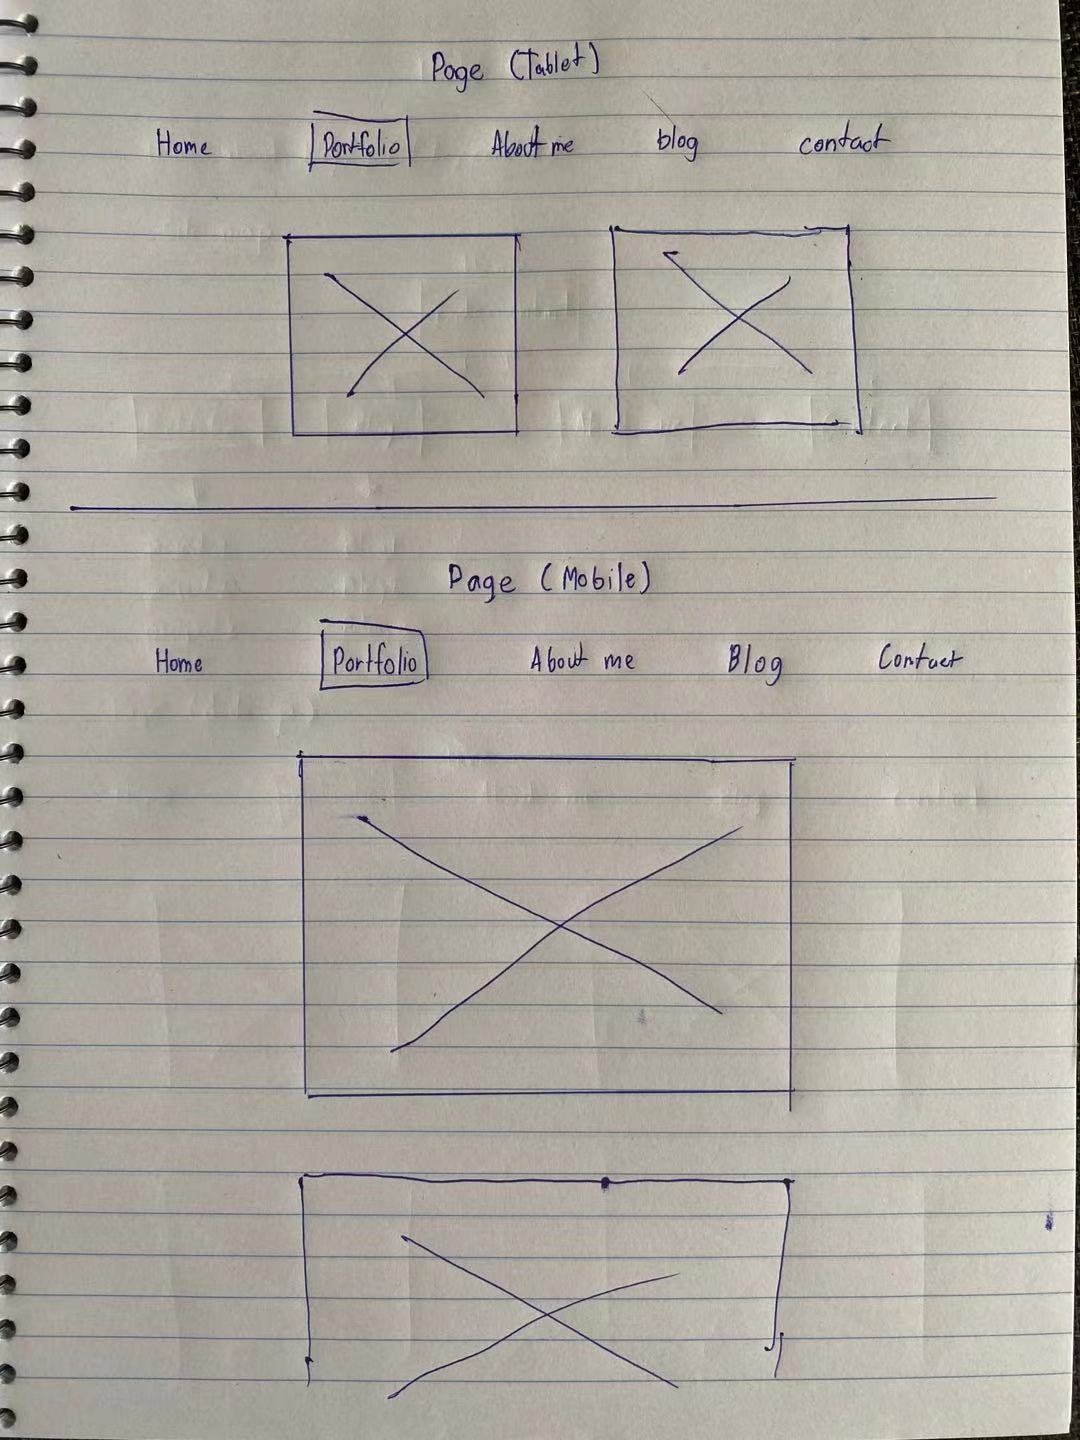 Page (Tablet)
Home Portfolio About me blog contact
Page (Mobile)
Home Portfolio About me Blog Contact